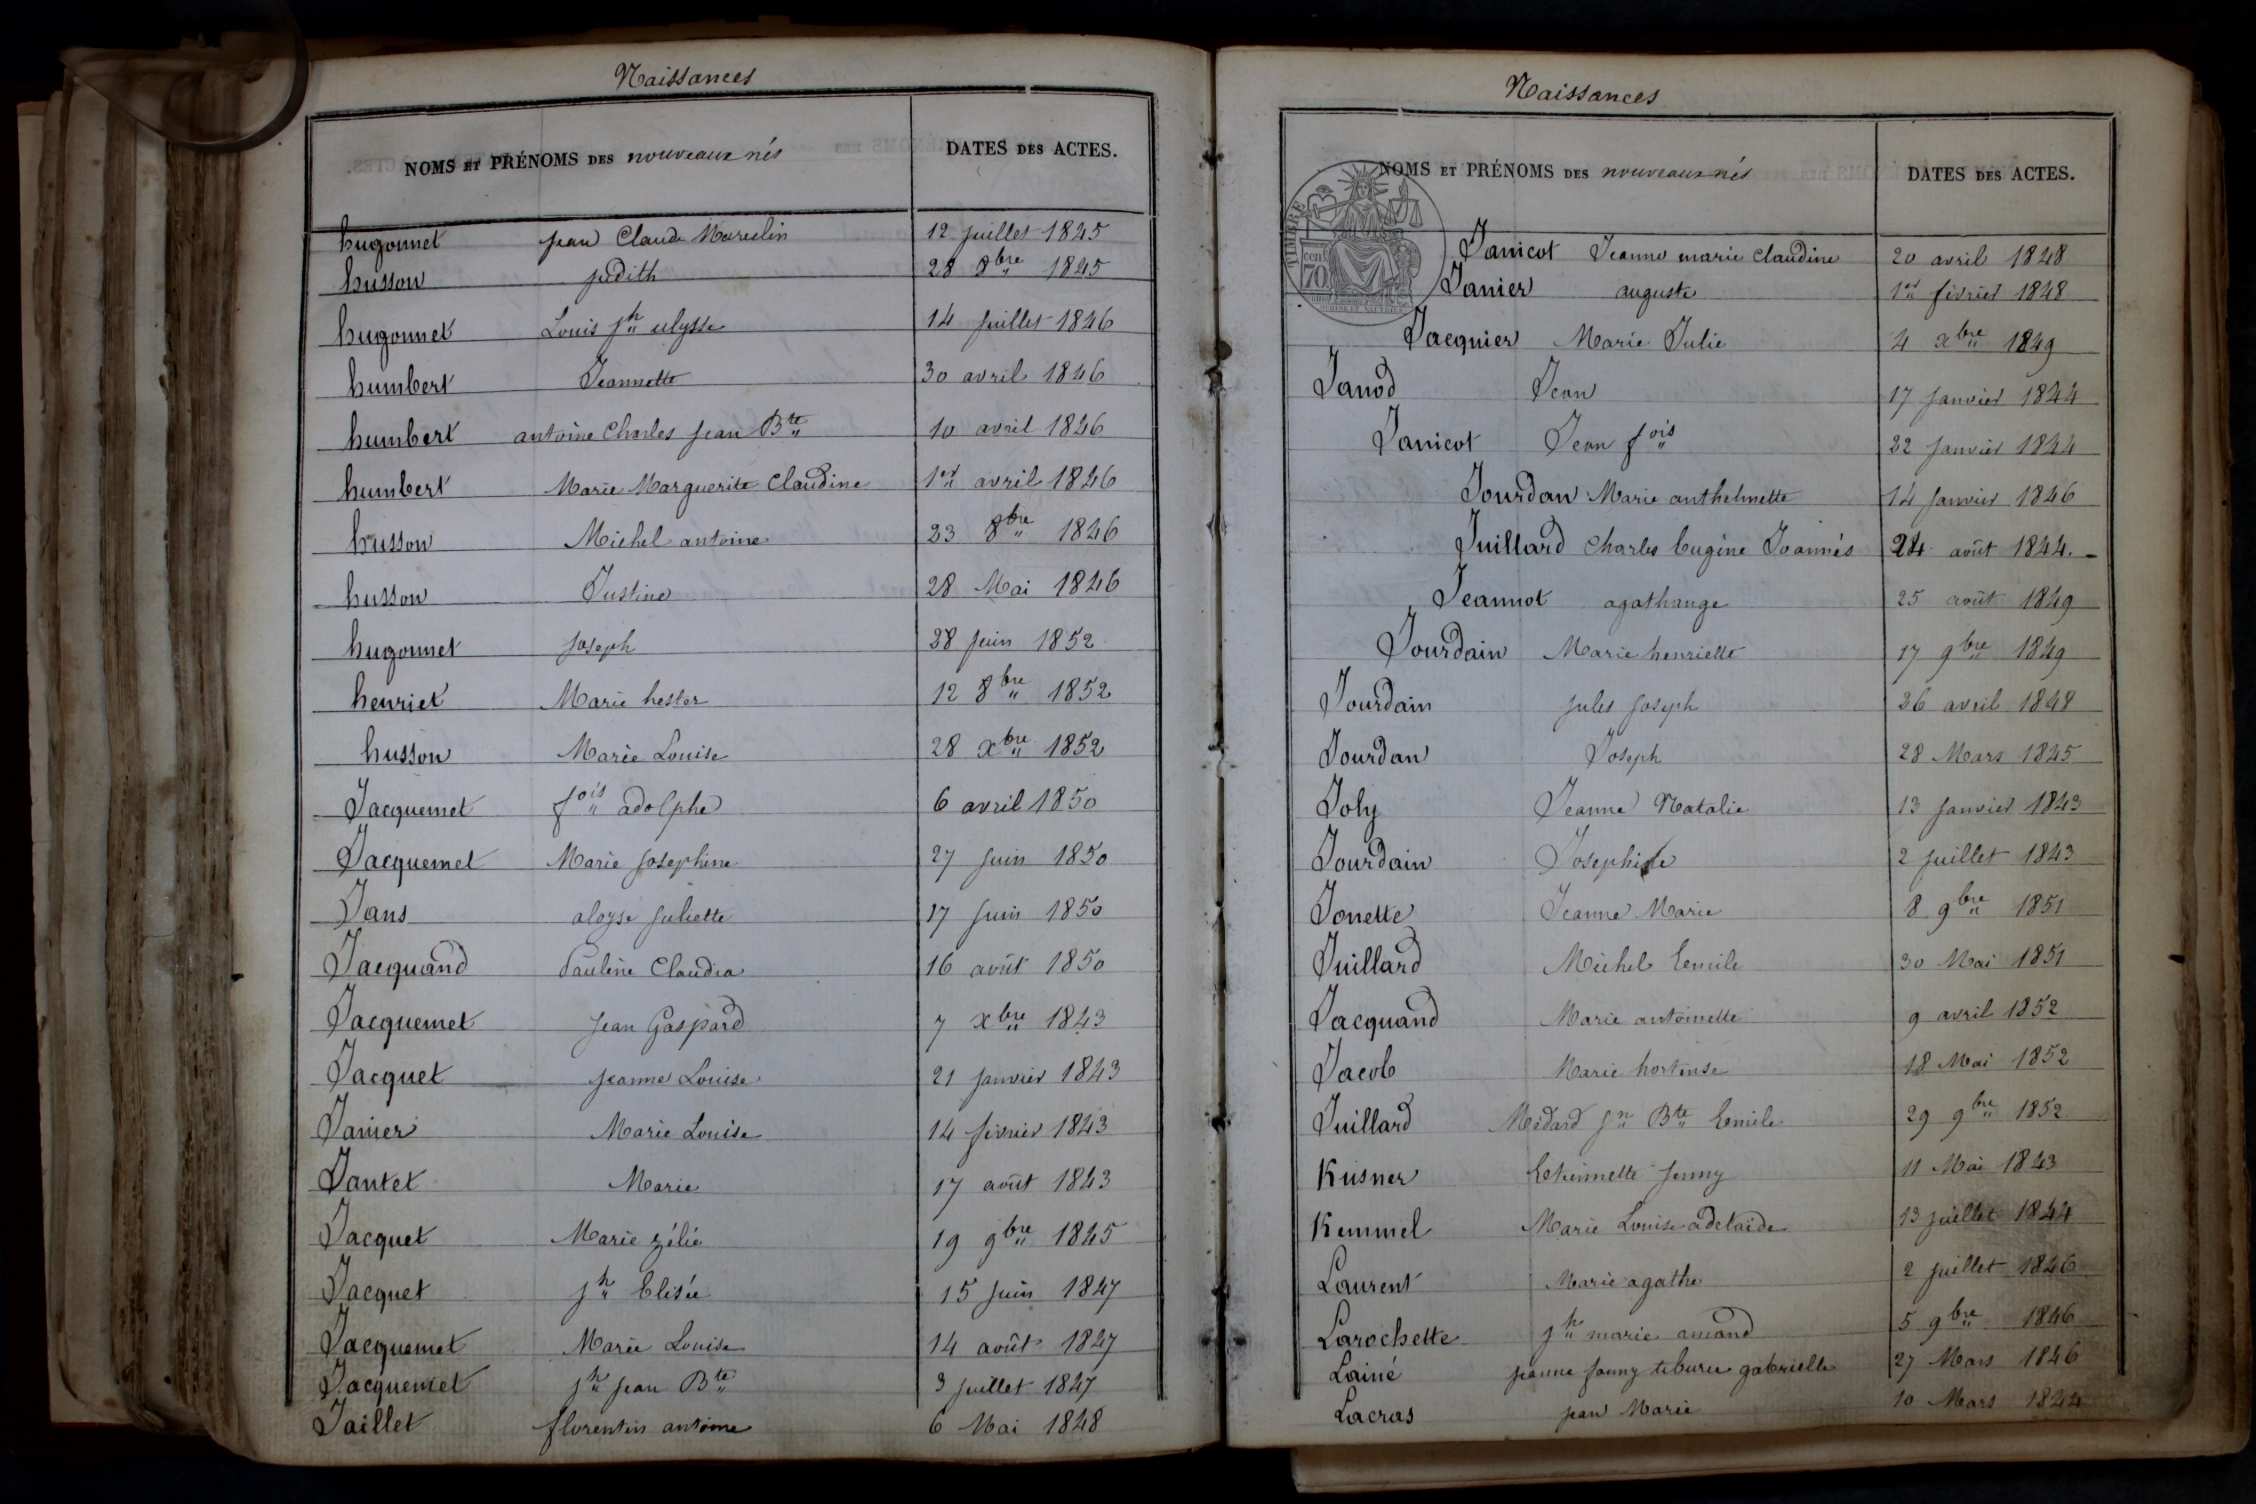 Naissances
NOMS ET PRÉNOMS DES nouveaux nés DATES DES ACTES.
hugonnet Jean Claude Marcelin 12 Juillet 1845
husson judith 28 8bre 1845
hugonnet Louis Jh ulysse 14 Juillet 1846
humbert Jeannette 30 avril 1846
humbert antoine Charles Jean Bte 10 avril 1846
humbert Marie Marguerite Claudine 1er avril 1846
husson Michel antoine 23 8bre 1846
husson Justine 28 Mai 1846
hugonnet Joseph 28 Juin 1852
henriet Marie hester 12 8bre 1852
husson Marie Louise 28 xbre 1852
Jacquemet fois adolphe 6 avril 1850
Jacquemet Marie Josephine 27 Juin 1850
Jans aloyse Juliette 17 Juin 1850
Jacquand Pauline Claudia 16 août 1850
Jacquemet Jean Gaspard 7 xbre 1843
Jacquet Jeanne Louise 21 Janvier 1843
Janier Marie Louise 14 février 1843
Jantet Marie 17 août 1843
Jacquet Marie zélie 19 9bre 1845
Jacquet Jh Elisée 15 Juin 1847
Jacquemet Marie Louise 14 août 1847
Jacquemet Jh Jean Bte 3 Juillet 1847
Jaillet florentin antoine 6 Mai 1848
Naissances
NOMS ET PRÉNOMS DES nouveaux nés DATES DES ACTES.
TIMBRE
70 cent
Janicot Jeanne marie Claudine 20 avril 1848
Janier auguste 1er février 1848
Jacquier Marie Julie 4 xbre 1849
Janod Jean 17 Janvier 1844
Janicot Jean fois 22 Janvier 1844
Jourdan Marie anthelmette 14 Janvier 1846
Juillard Charles Eugène Joannés 24 août 1844.
Jeannot agathange 25 août 1849
Jourdain Marie henriette 17 9bre 1849
Jourdain Jules Joseph 26 avril 1848
Jourdan Joseph 28 Mars 1845
Joly Jeanne Natalie 13 Janvier 1843
Jourdain Josephine 2 Juillet 1843
Jonette Jeanne Marie 8 9bre 1851
Juillard Michel Emile 30 Mai 1851
Jacquand Marie antoinette 9 avril 1852
Jacob Marie hortense 18 Mai 1852
Juillard Médard Jn Bte Emile 29 9bre 1852
Kusner Etiennette Jenny 11 Mai 1843
Kemmel Marie Louise adelaide 13 Juillet 1844
Laurent Marie agathe 2 Juillet 1846
Larochette Jh marie amand 5 9bre 1846
Lainé Jeanne fanny gabrielle 27 Mars 1846
Lacras Jean Marie 10 Mars 1844